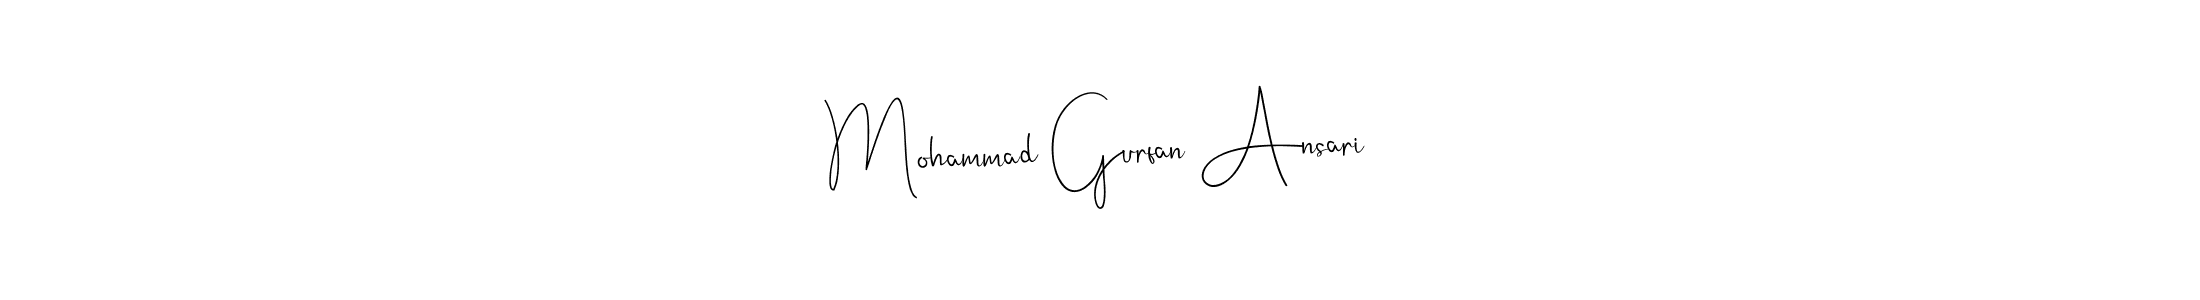 Mohammad Gurfan Ansari